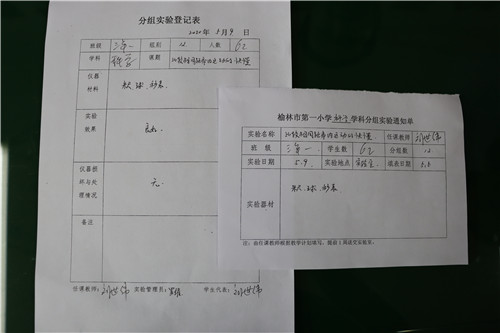 分组实验登记表
2020年5月9日
班级 三年一 组别 12 人数 62
学科 科学 课题 比较相同距离内运动的快慢
仪器材料 米尺、球、秒表
实验效果 良好
仪器损坏与处理情况 无
备注
任课教师: 实验管理员: 学生代表:
榆林市第一小学科学学科分组实验通知单
实验名称 比较相同距离内运动的快慢 任课教师
班级 三年一 学生数 62 分组数 12
实验日期 5.9 实验地点 实验室 填表日期 5.8
实验器材 米尺、球、秒表
注:由任课教师根据教学计划填写,提前1周送交实验室。